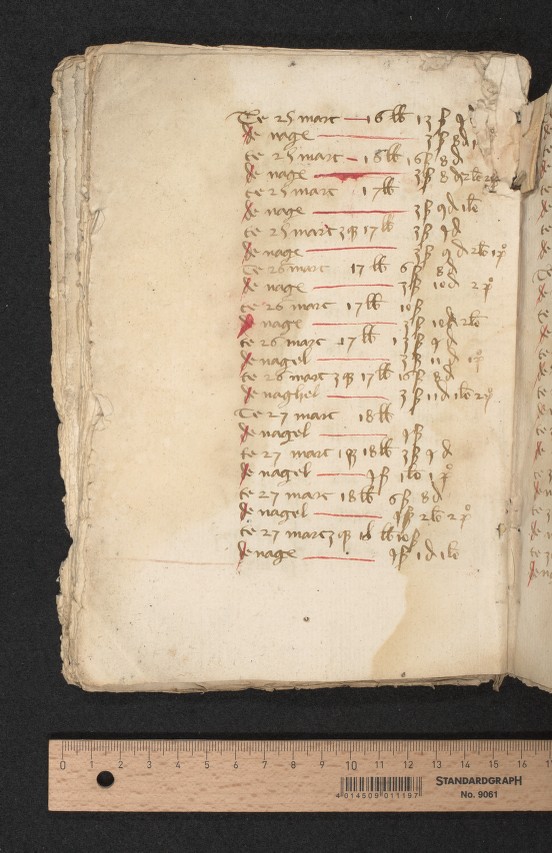 Te 25 marc — 16 lb 13 ß 9
de nage — 3 ß 8 d 1
te 25 marc — 16 lb 16 ß 8 d
de nage — 3 ß 8 d 2 lb
te 25 marc 17 lb
de nage — 3 ß 9 d 1 lb
te 25 marc 3 qr 17 lb 3 ß 9 d
de nage — 3 ß 9 d 2 lb 1 p
Te 26 marc 17 lb 6 ß 8 d
de nage — 3 ß 10 d 2 p
te 26 marc 17 lb 10 ß
de nage — 3 ß 10 d 2 lb
te 26 marc 17 lb 13 ß 9 d
de nagel — 3 ß 11 d 1 p
te 26 marc 3 qr 17 lb 16 ß 8 d
de naghel — 3 ß 11 d 1 lb 2 p
Te 27 marc 18 lb
de nagel — 9 ß
te 27 marc 1 qr 18 lb 3 ß 9 d
de nagel — 9 ß 1 lb 1 p
te 27 marc 18 lb 6 ß 8 d
de nagel — 9 ß 2 lb 2 p
te 27 marc 3 qr 18 lb 10 ß
de nage — 9 ß 1 d 1 lb
0 1 2 3 4 5 6 7 8 9 10 11 12 13 14 15 16
4 014509 011197
STANDARDGRAPH
No. 9061